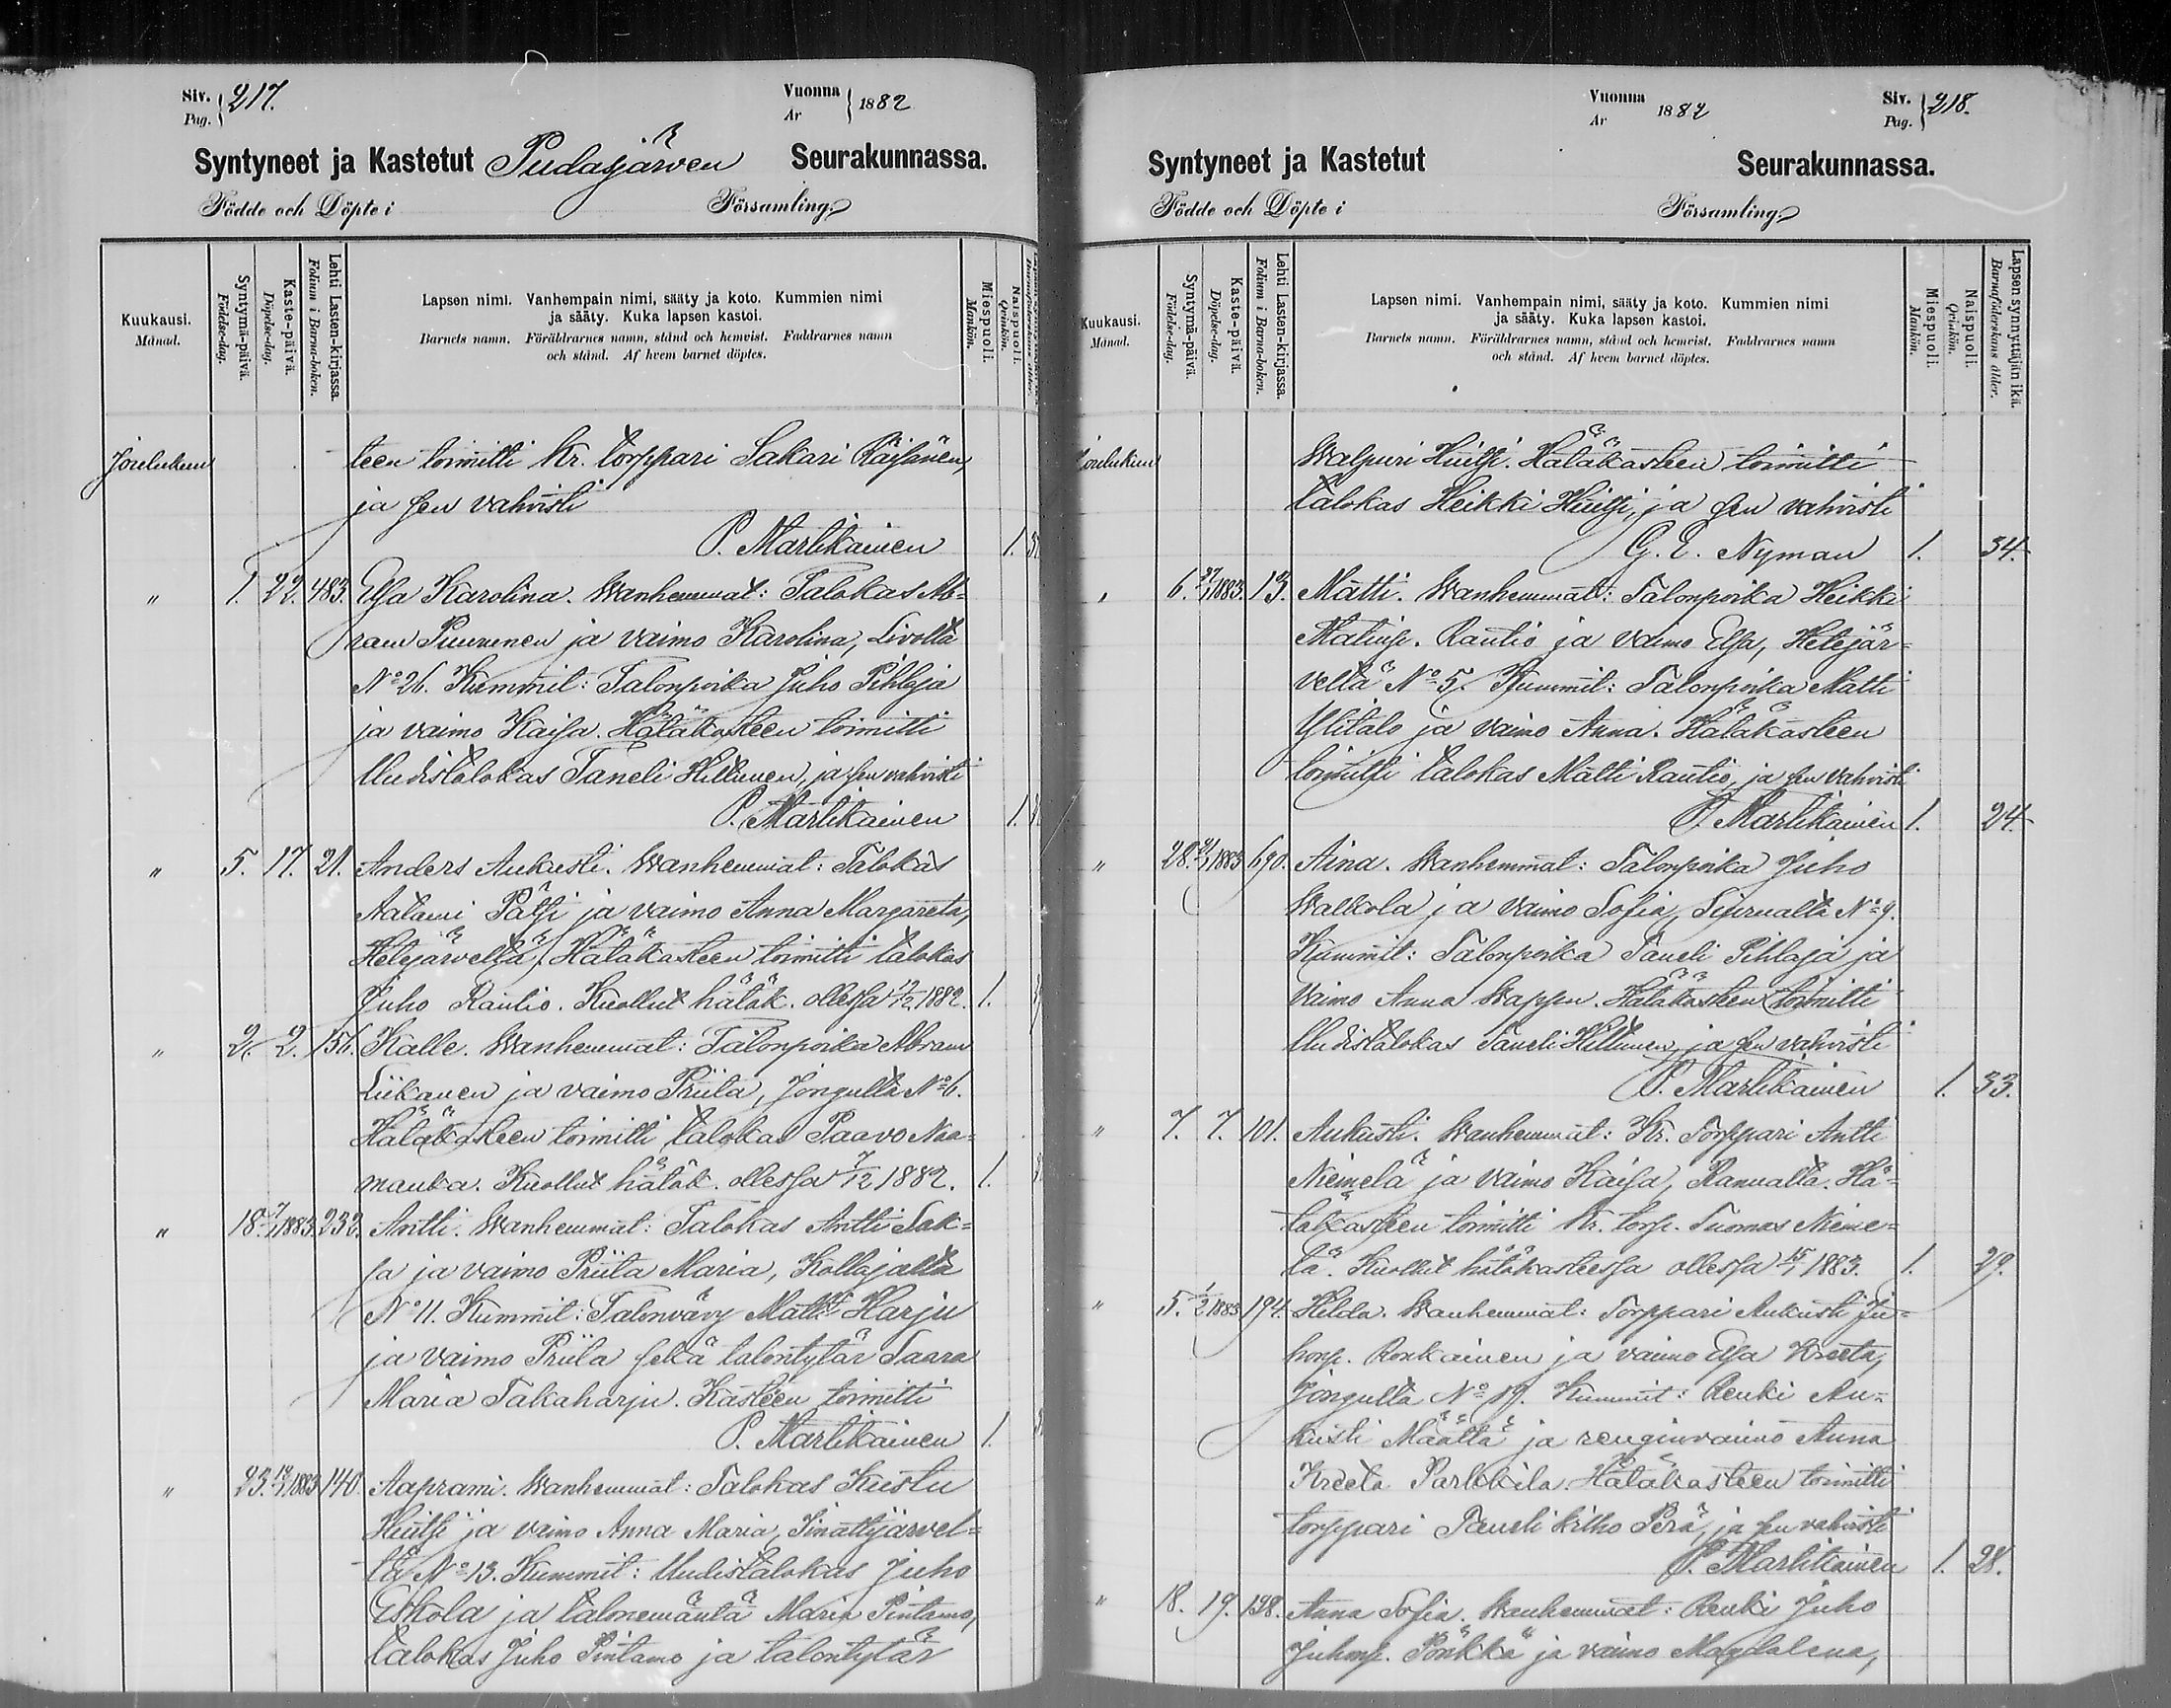 Siv. 217.
Pag.
Vuonna 1882
Ar
Syntyneet ja Kastetut Pudasjärven Seurakunnassa.
Födde och Döpte i Församling
Kuukausi.
Månad.
Syntymä-päivä.
Födelse-dag.
Kaste-päivä.
Döpelse-dag.
Lehti Lasten-kirjassa.
Folium i Barna-boken.
Lapsen nimi. Vanhempain nimi, sääty ja koto. Kummien nimi
ja sääty. Kuka lapsen kastoi.
Barnets namn. Föräldrarnes namn, stånd och hemvist. Faddrarnes namn
och stånd. Af hvem barnet döptes.
Miespuoli.
Mankön.
Naispuoli.
Qvinkön.
Joulukuu teen toimitti Kr. torppari Sakari Räisänen,
ja sen vahvisti
P. Martikainen 1.
" 1. 22. 483. Elsa Karolina. Wanhemmat: Talokas Ab=
ram Puurunen ja vaimo Karolina, Livolta
No 26. Kummit: Talonpoika Juho Pihlaja
ja vaimo Kaisa. Hätäkasteen toimitti
Uudistalokas Taneli Hiltunen, ja sen vahvisti
P. Martikainen 1.
" 5. 17. 21. Anders Aukusti. Wanhemmat: Talokas
Aatami Pätsi ja vaimo Anna Margareta,
Hetejärveltä. Hätäkasteen toimitti talokas
Juho Rautio. Kuollut hätäk. ollessa 17/12 1882. 1.
" 2. 2. 156. Kalle. Wanhemmat: Talonpoika Abram
Liikanen ja vaimo Priita, Jongulta No 6.
Hätäkasteen toimitti talokas Paavo Naa=
manka. Kuollut hätäk. ollessa 7/12 1882. 1.
" 18. 7/1 1883. 232. Antti. Wanhemmat: Talokas Antti Sak=
sa ja vaimo Priita Maria, Kollajalta
No 11. Kummit: Talonvävy Matti Harju
ja vaimo Priita sekä talontytär Saara
Maria Takaharju. Kasteen toimitti
P. Martikainen 1.
" 23. 1883 140. Aaprami. Wanhemmat: Talokas Kustu
Huitsi ja vaimo Anna Maria, Iinattijärvel=
tä No 13. Kummit: Uudistalokas Juho
Eskola ja talonemäntä Maria Pintamo,
talokas Juho Pintamo ja talontytär
Vuonna 1882
Ar
Siv. 218.
Pag.
Syntyneet ja Kastetut Seurakunnassa.
Födde och Döpte i Församling
Kuukausi.
Månad.
Syntymä-päivä.
Födelse-dag.
Kaste-päivä.
Döpelse-dag.
Lehti Lasten-kirjassa.
Folium i Barna-boken.
Lapsen nimi. Vanhempain nimi, sääty ja koto. Kummien nimi
ja sääty. Kuka lapsen kastoi.
Barnets namn. Föräldrarnes namn, stånd och hemvist. Faddrarnes namn
och stånd. Af hvem barnet döptes.
Miespuoli.
Mankön.
Naispuoli.
Qvinkön.
Lapsen synnyttäjän ikä.
Barnaföderskans ålder.
Joulukuu Walpuri Huitsi. Hätäkasteen toimitti
talokas Heikki Huitsi, ja sen vahvisti
G. E. Nyman 1. 34.
" 6. 27/1 1883. 13. Matti. Wanhemmat: Talonpoika Heikki
Matinp. Rautio ja vaimo Elsa, Hetejär=
veltä No 5. Kummit: Talonpoika Matti
Ylitalo ja vaimo Anna. Hätäkasteen
toimitti talokas Matti Rautio, ja sen vahvisti
P. Martikainen 1. 24.
" 28. 1883 690. Aina. Wanhemmat: Talonpoika Juho
Walkola ja vaimo Sofia, Siurualta No 9.
Kummit: Talonpoika Taneli Pihlaja ja
vaimo Anna Wappu. Hätäkasteen toimitti
Uudistalokas Taneli Hiltunen, ja sen vahvisti
P. Martikainen 1. 33.
" 7. 7. 101. Aukusti. Wanhemmat: Kr. Torppari Antti
Niemelä ja vaimo Kaisa, Ranualta. Hä=
täkasteen toimitti Kr. torp. Tuomas Nieme=
lä. Kuollut hätäkasteessa ollessa 15/1 1883. 1. 29.
" 5. 1/2 1883 194. Hilda. Wanhemmat: Torppari Aukusti Ju=
honp. Ronkainen ja vaimo Elsa Kreeta,
Jongulta No 19. Kummit: Renki Au=
kusti Määttä ja renginvaimo Anna
Kreeta Parkkila. Hätäkasteen toimitti
torppari Taneli Erkko Perä, ja sen vahvisti
P. Martikainen 1. 28.
" 18. 19. 148. Anna Sofia. Wanhemmat: Renki Juho
Juhonp. Pönkkä ja vaimo Magdalena,